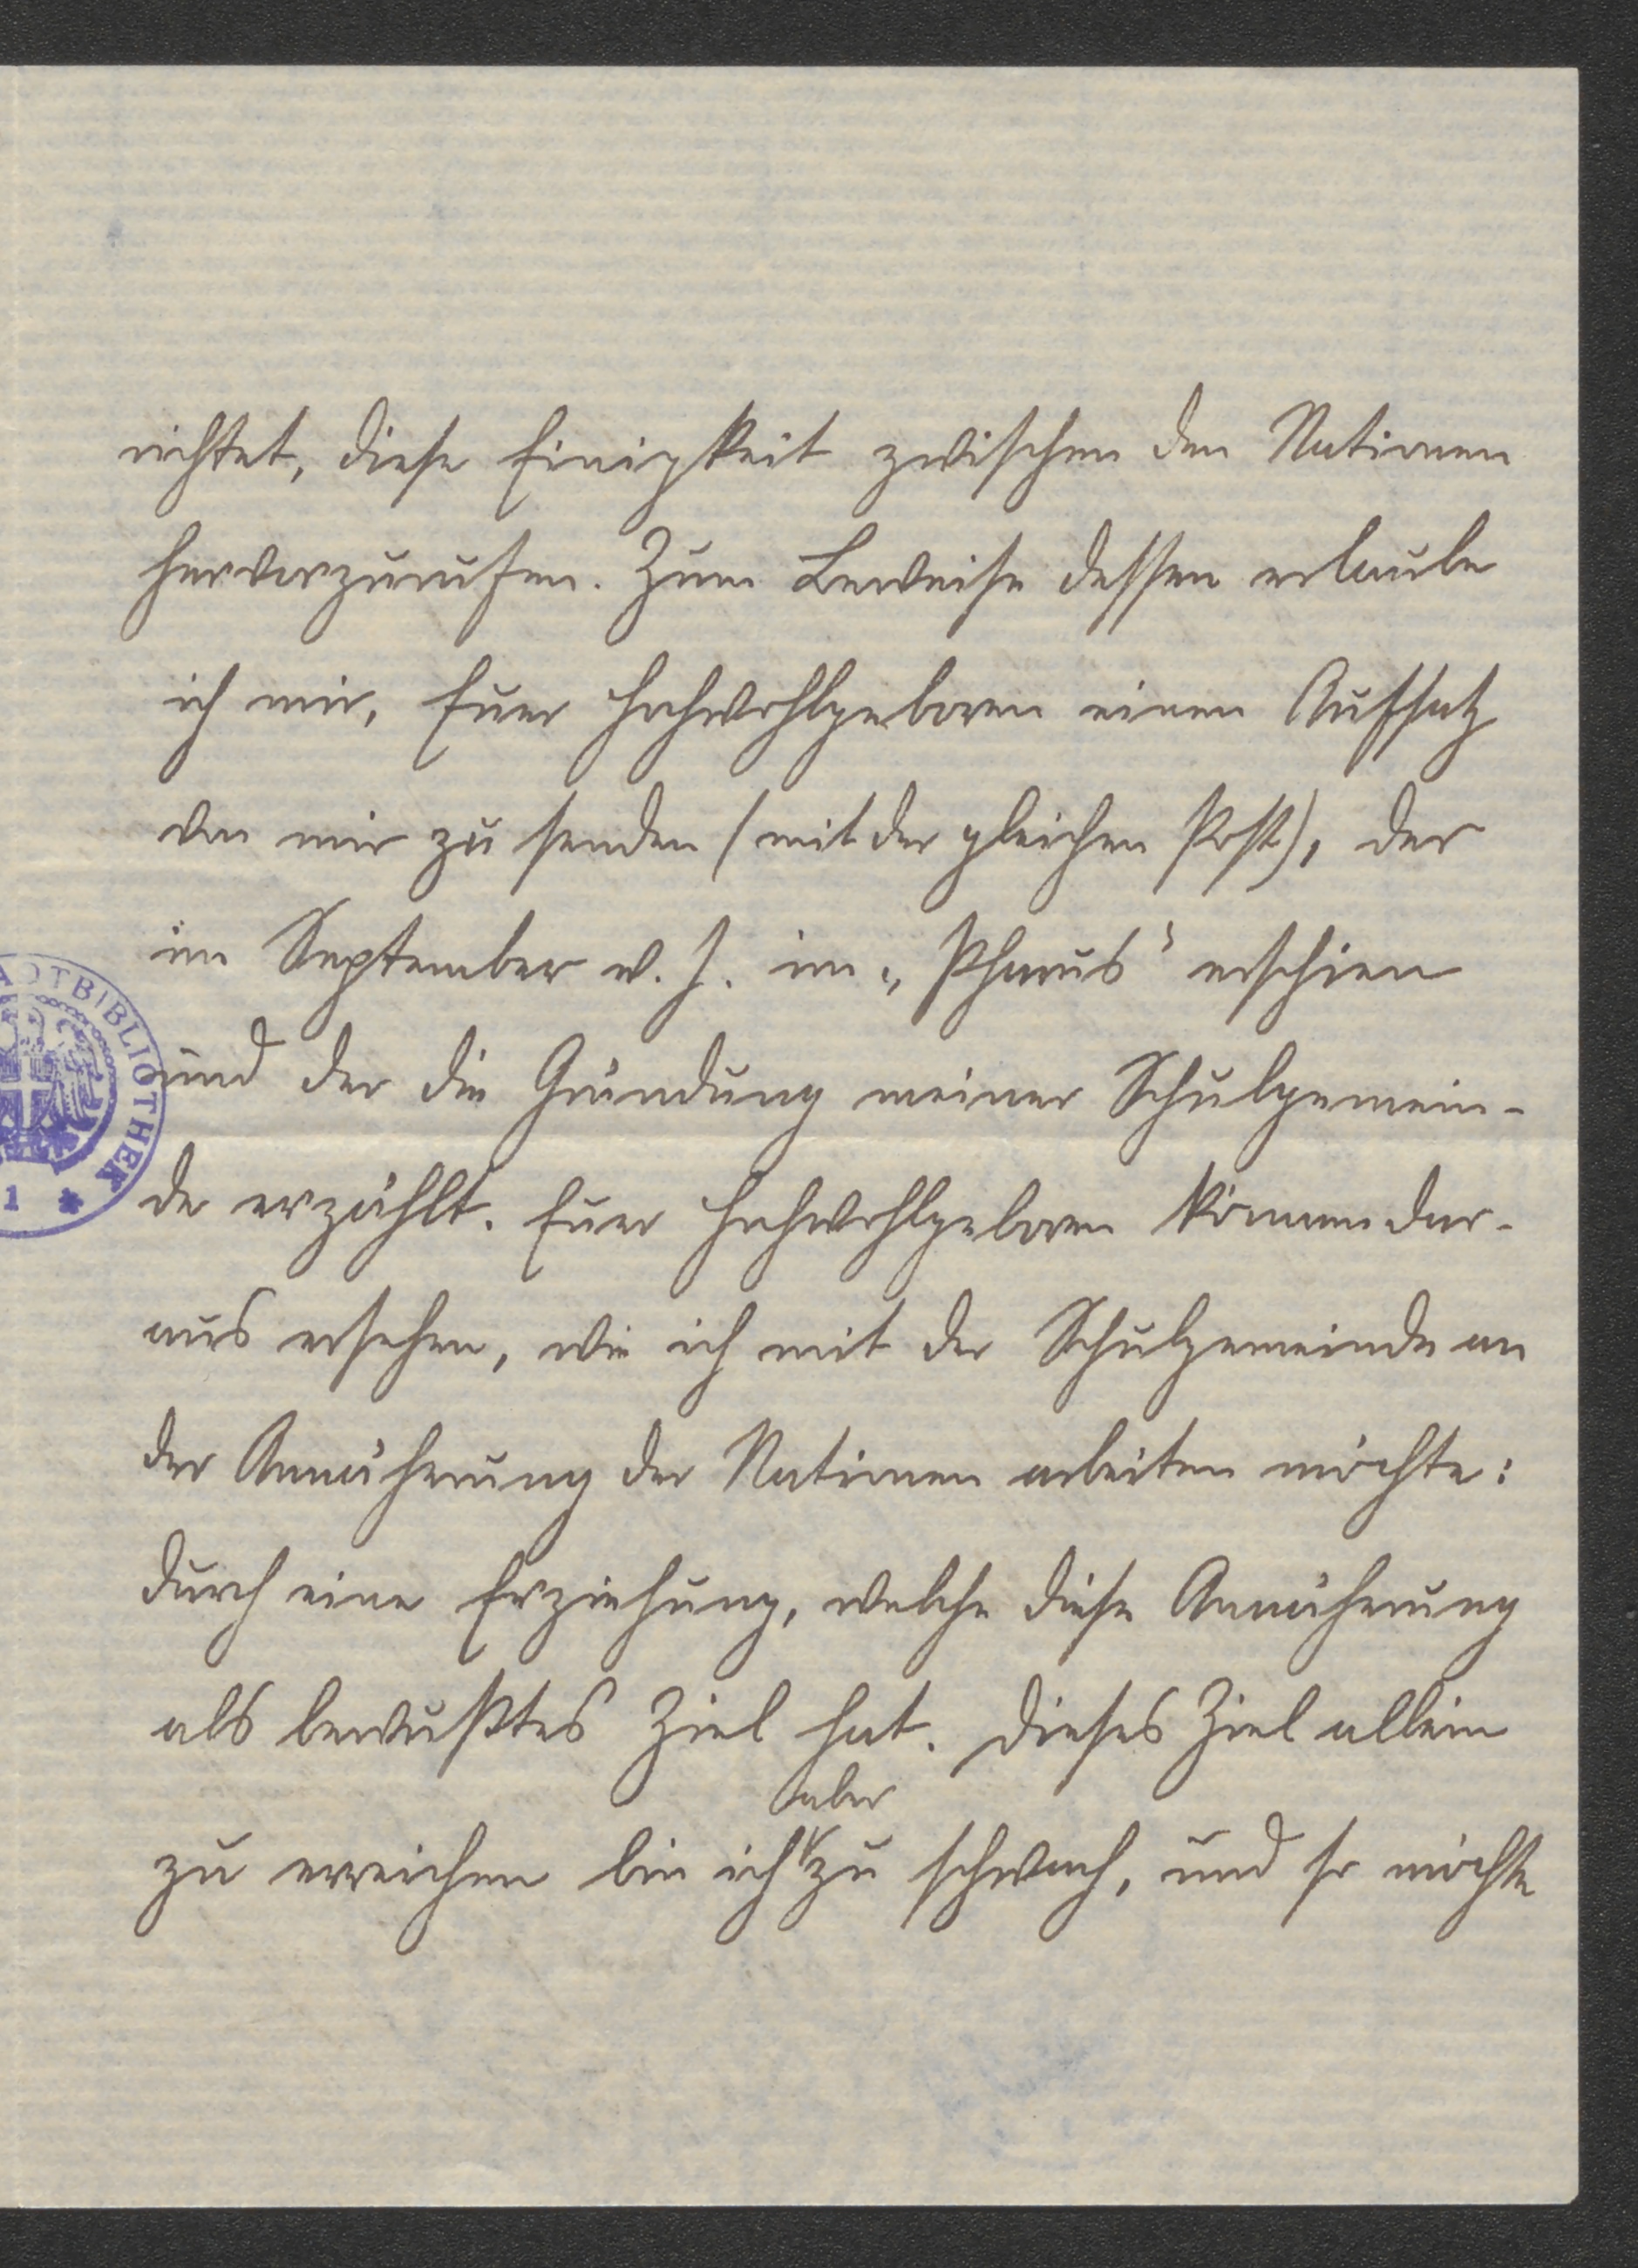 richtet, diese Einigkeit zwischen den Nationen
hervorzurufen. Zum Beweise dessen erlaube
ich mir, Euer Hochwohlgeboren einen Aufsatz
von mir zu senden (mit der gleichen Post), der
im September v. J. im „Pharus“ erschien
und der die Gründung meiner Schulgemein-
de erzählt. Euer Hochwohlgeboren können dar-
aus ersehen, wie ich mit der Schulgemeinde an
der Annäherung der Nationen arbeiten möchte:
durch eine Erziehung, welche diese Annäherung
als bewußtes Ziel hat. Dieses Ziel allein
aber
zu erreichen bin ich zu schwach, und so möchte
ADTBIBLIOTHEK
1 *